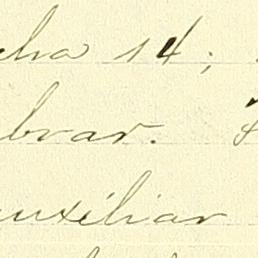 cha 14;
brar.
auxiliar